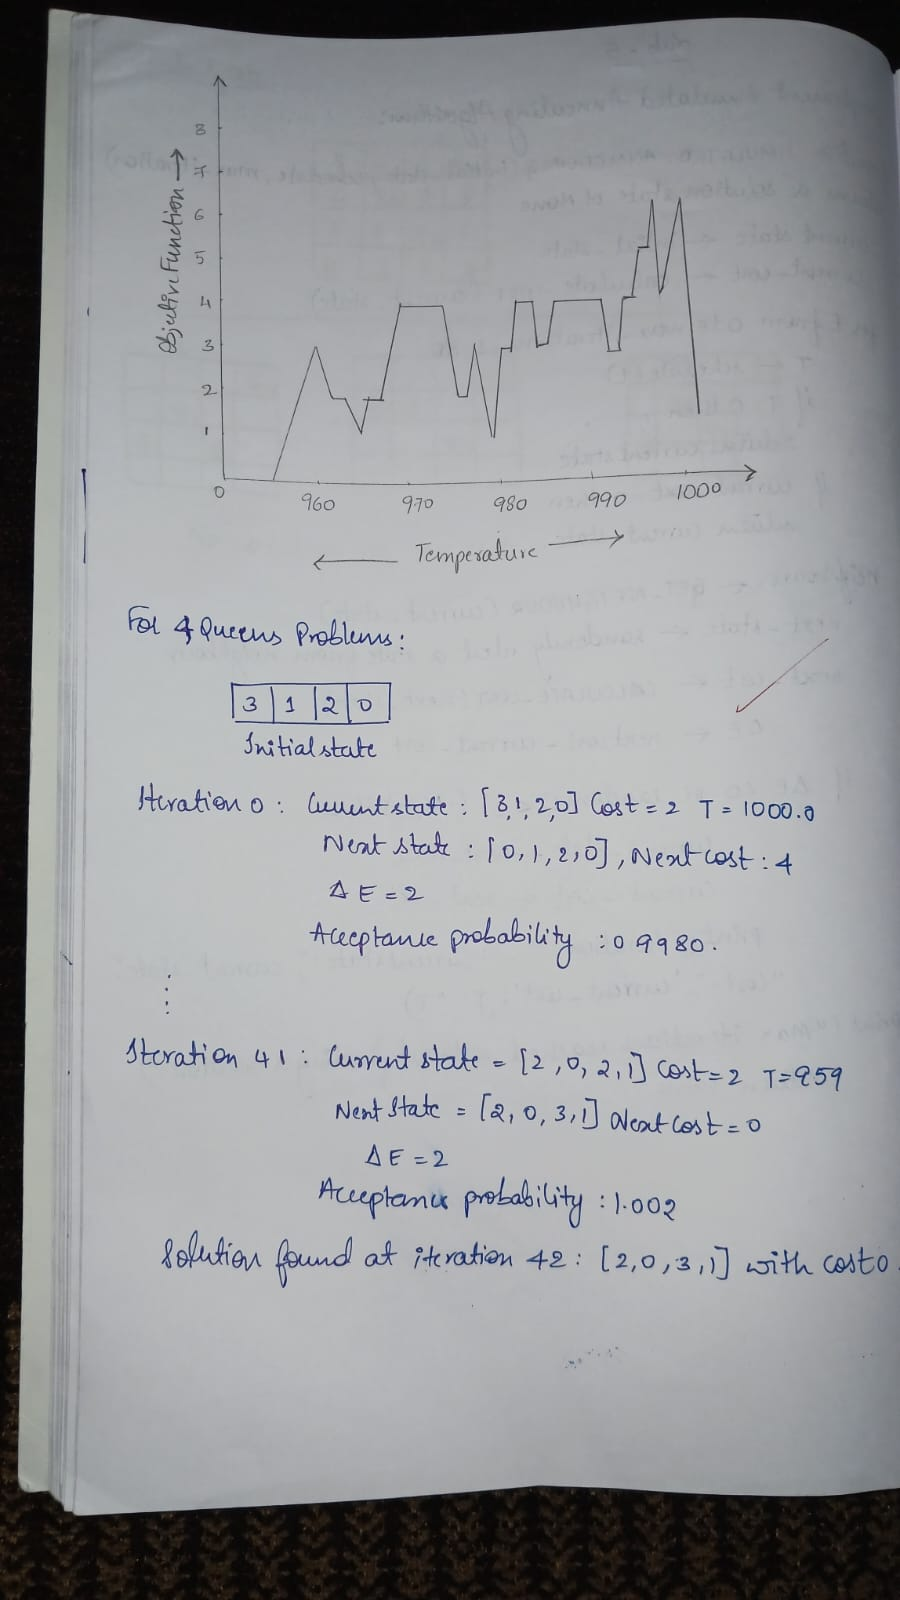 8
7
6
5
4
3
2
1
Objective Function →
0 960 970 980 990 1000
← Temperature →
For 4 Queens Problems:
3 1 2 0
Initial state
Iteration 0 : Current state : [3,1,2,0] Cost = 2 T = 1000.0
Next state : [0,1,2,0], Next cost : 4
Δ E = 2
Acceptance probability : 0 9980.
Iteration 41 : Current state = [2,0,2,1] Cost = 2 T=959
Next State = [2,0,3,1] Next Cost = 0
Δ E = 2
Acceptance probability : 1.002
Solution found at iteration 42: [2,0,3,1] with cost 0.